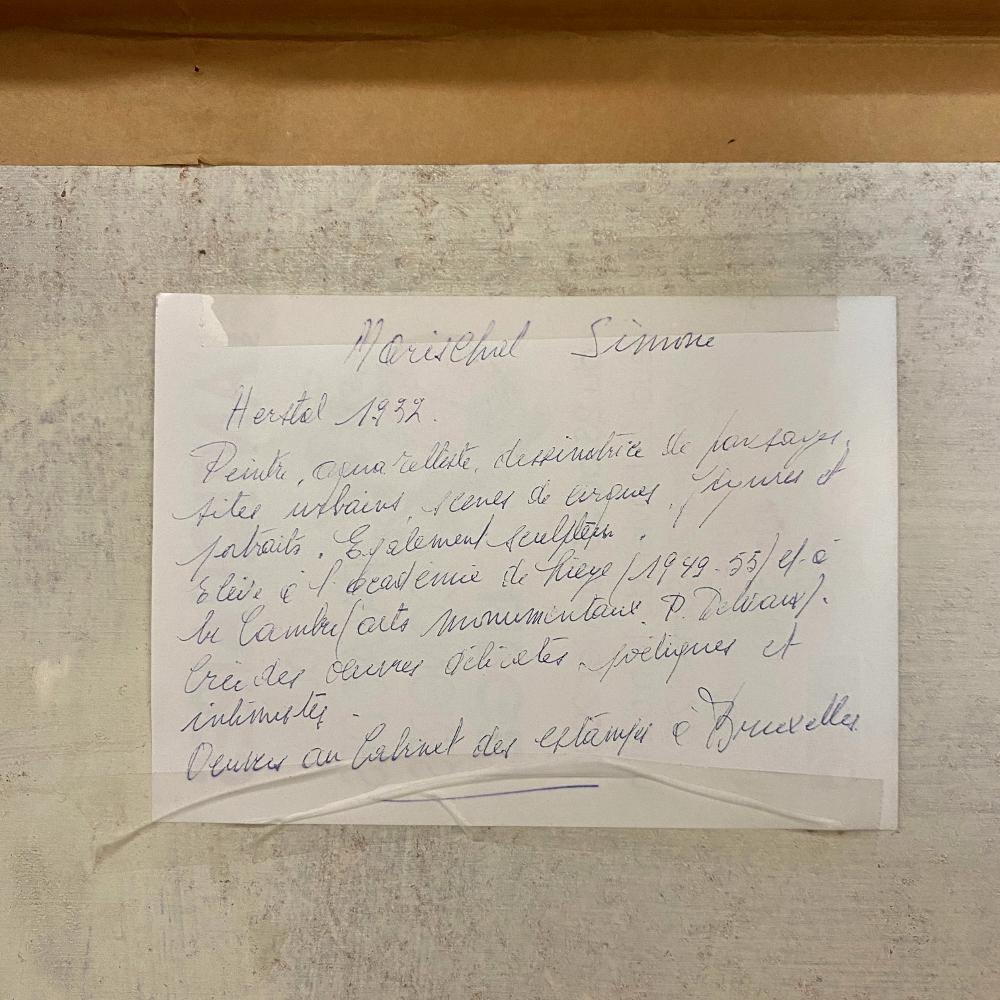 Marischal Simone
Herstal 1932.
Peintre, aquarelliste, dessinatrice de paysages,
sites urbains, scènes de cirques, figures et
portraits. Egalement sculpteur.
Elève à l'académie de Liège (1949-55) et à
la Cambre (arts monumentaux. P. Delvaux).
Crée des oeuvres délicates, poétiques et
intimistes.
Oeuvres au Cabinet des estampes à Bruxelles